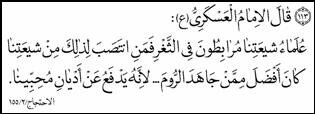 (١١٣) قَالَ الْاِمَامُ الْعَسْكَرِيُّ (ع):
عُلَمَاءُ شِيعَتِنَا مُرَابِطُونَ فِي الثَّغْرِ فَمَنِ انْتَصَبَ لِذٰلِكَ مِنْ شِيعَتِنَا
كَانَ أَفْضَلَ مِمَّنْ جَاهَدَ الرُّومَ... لِأَنَّهُ يَدْفَعُ عَنْ أَدْيَانِ مُحِبِّينَا.
الاحتجاج/٢/١٥٥